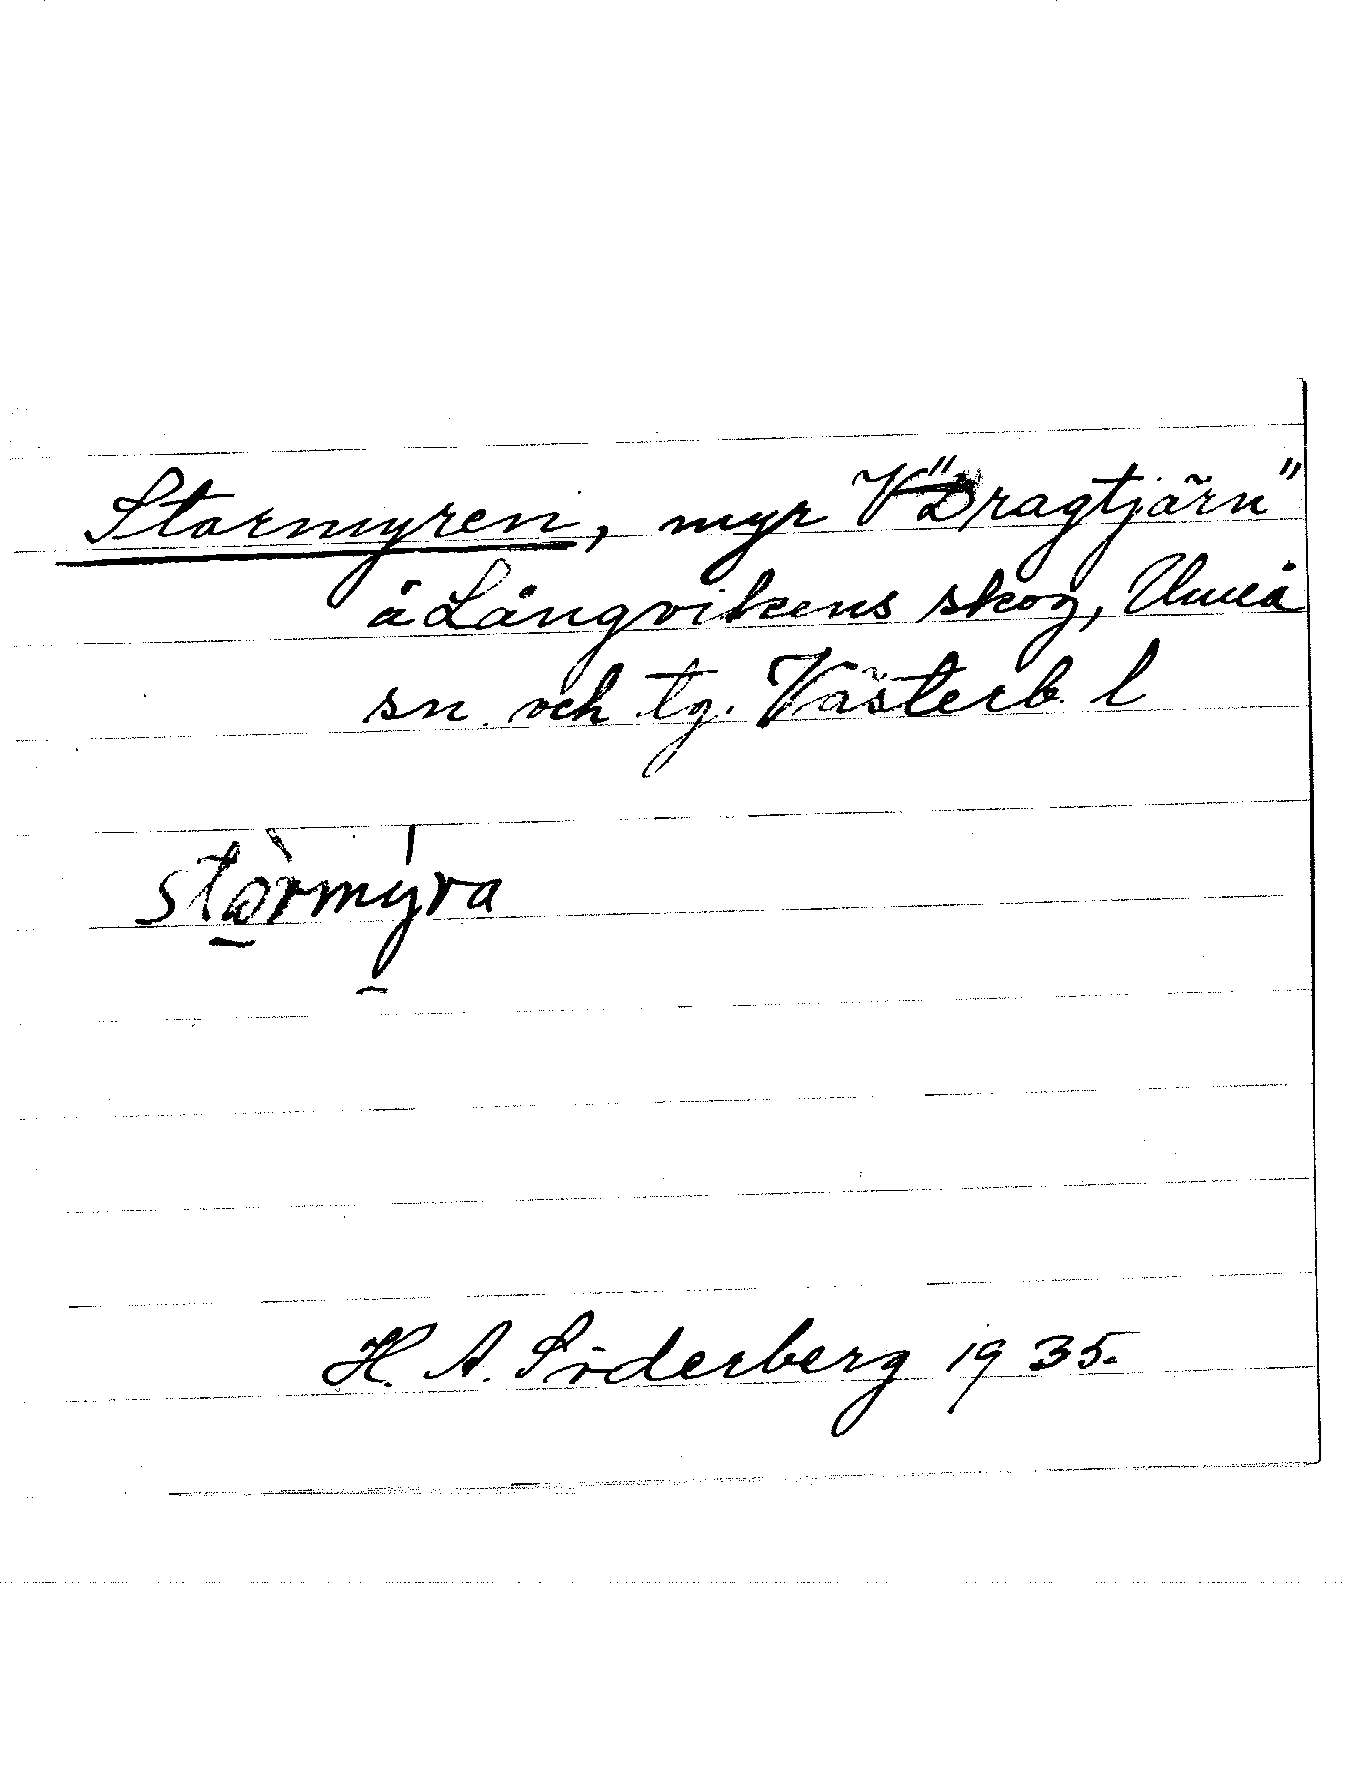 Stormyren, myr V "Dragtjärn"
å Långvikens skog, Umeå
sn och tg. Västerb. l
stòrmýra
H. A. Söderberg 1935.